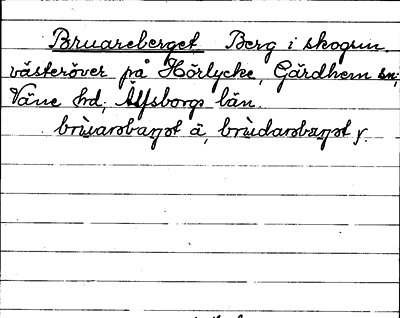 Bruareberget Berg i skogen
västeröver på Hörlycke, Gärdhem sn;
Väne hd, Älfsborgs län.
ä, y.